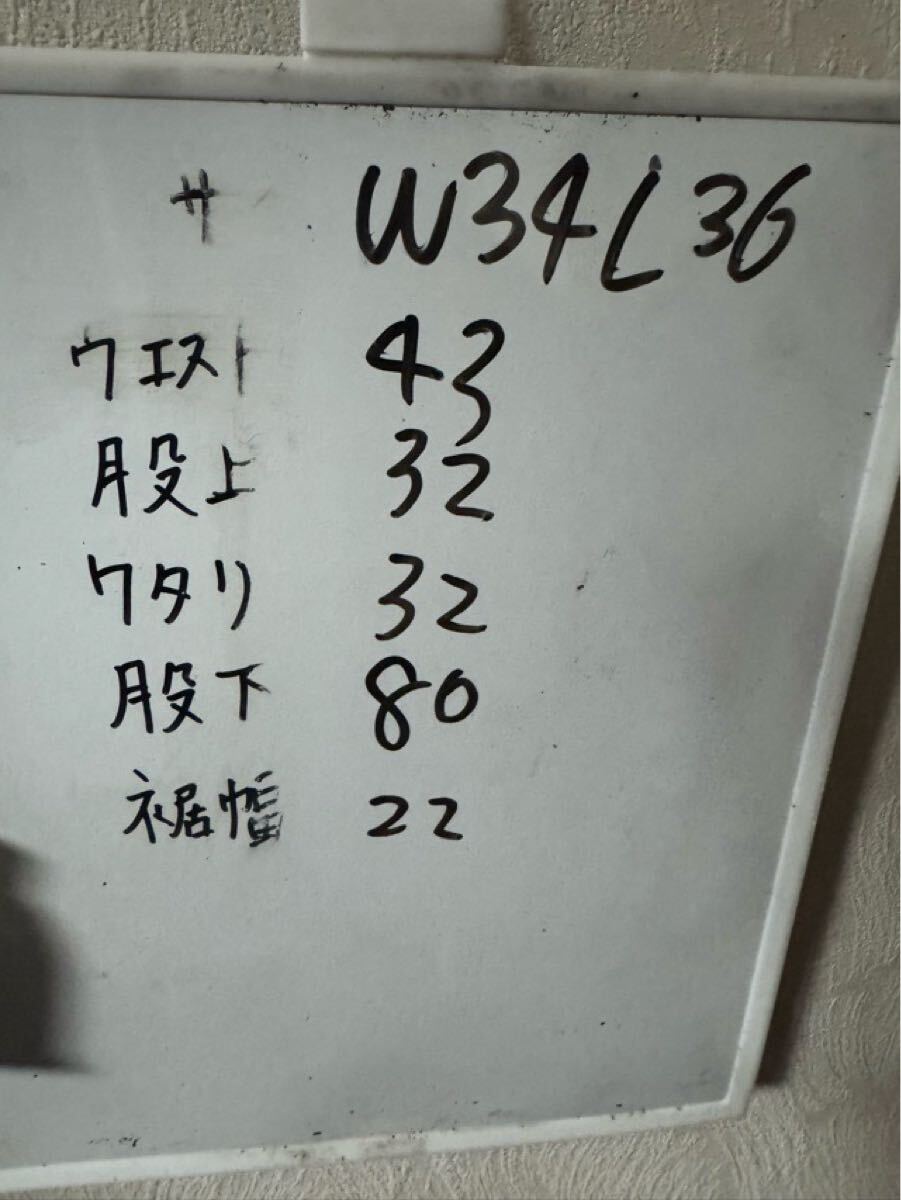 サ W34 L36
ウエスト 43
股上 32
ワタリ 32
股下 80
裾幅 22